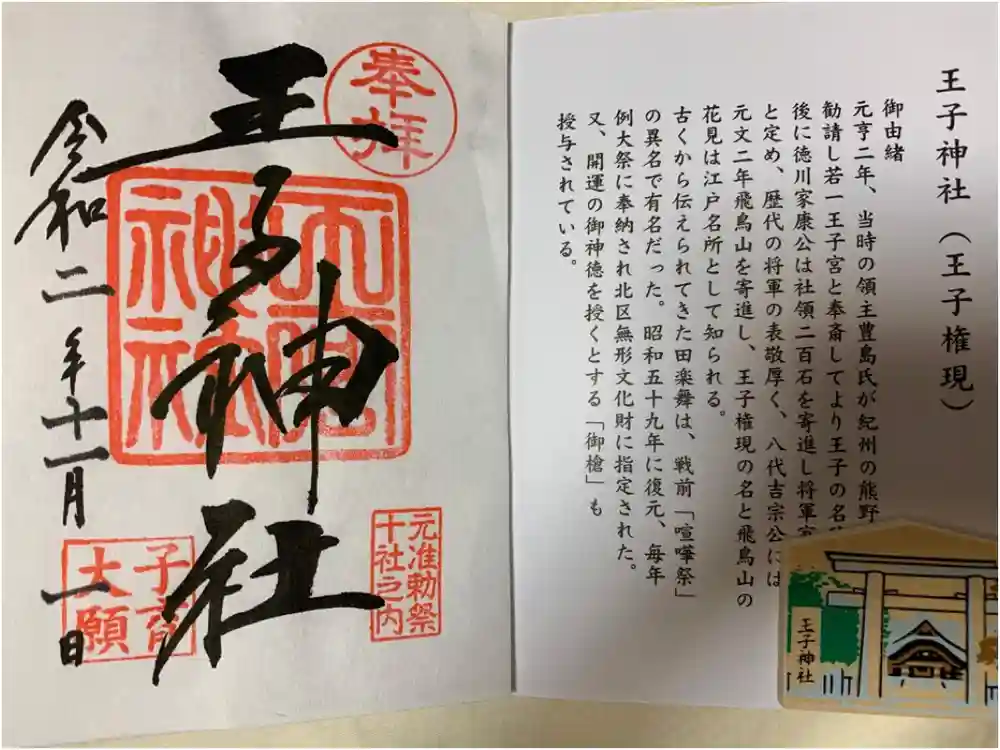 王子神社（王子権現）
御由緒
元亨二年、当時の領主豊島氏が紀州の熊野
勧請し若一王子宮と奉斎してより王子の名
後に徳川家康公は社領二百石を寄進し将軍
と定め、歴代の将軍の表敬厚く、八代吉宗公には
元文二年飛鳥山を寄進し、王子権現の名と飛鳥山の
花見は江戸名所として知られる。
古くから伝えられてきた田楽舞は、戦前「喧嘩祭」
の異名で有名だった。昭和五十九年に復元、毎年
例大祭に奉納され北区無形文化財に指定された。
又、開運の御神徳を授くとする「御槍」も
授与されている。
王子神社
奉拝
王子神社
元准勅祭
十社之内
子育
大願
令和二年十一月一日